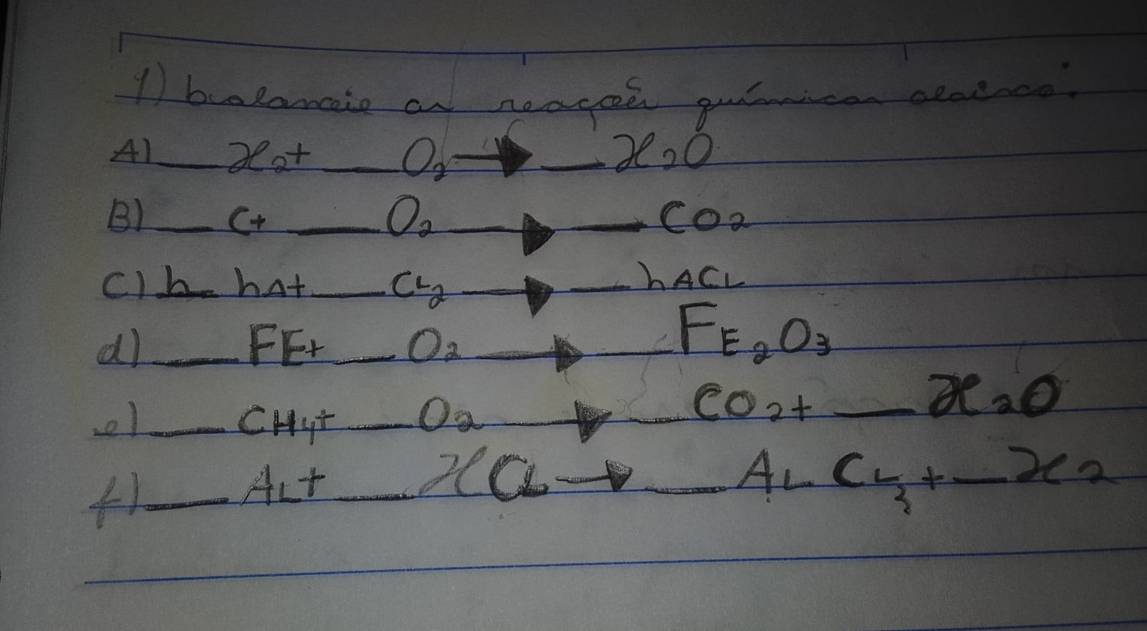 1) balanceie as reações químicas abaixo:
A) __ H2 + __ O2 → __ H2O
B) __ C + __ O2 → __ CO2
C) h__ hA + __ CL2 → __ hACL
d) __ FE + __ O2 → __ FE2O3
e) __ CH4 + __ O2 → __ CO2 + __ H2O
f) __ AL + __ HCL → __ AL CL3 + __ H2